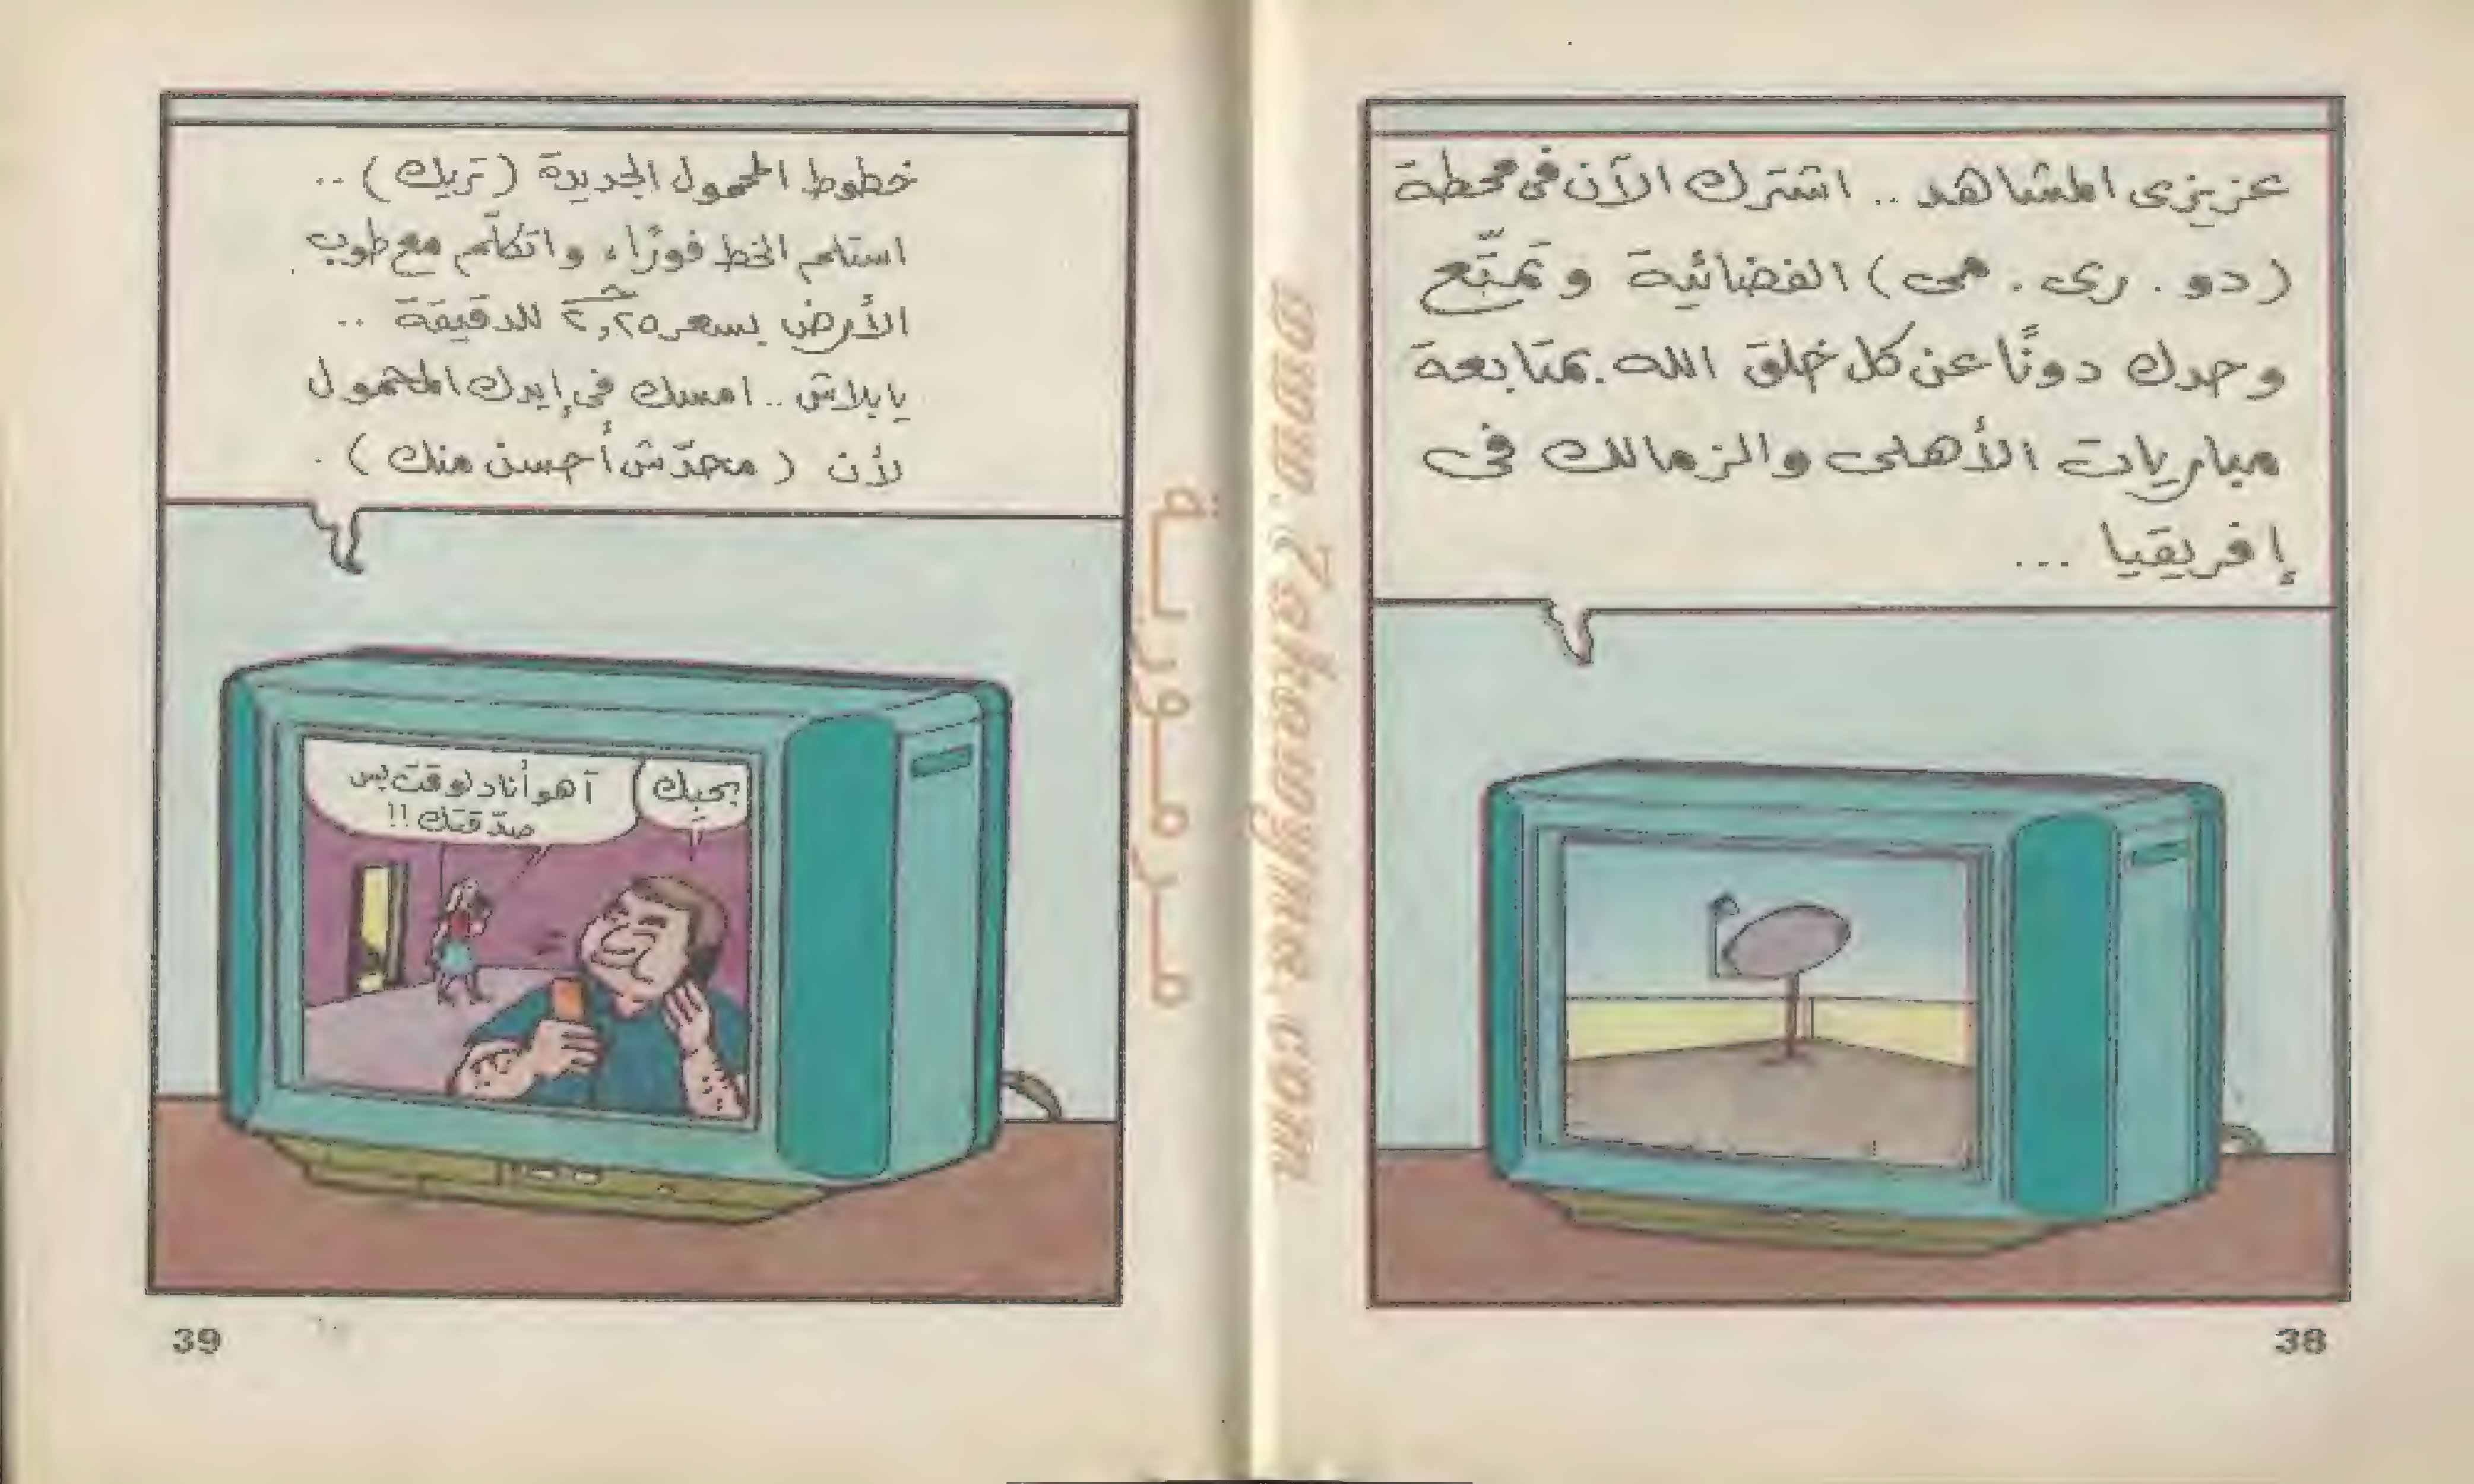 عزيزى المشاهد .. اشترك الآن فى محطة
(دو . رى . مى) الفضائية وتمتّع
وحدك دونًا عن كل خلق الله بمتابعة
مباريات الأهلى والزمالك فى
إفريقيا ...
38
www.Zakawyna.com
مرمورية
خطوط المحمول الجديدة (تريك) ..
استلم الخط فورًا، واتكلّم مع طوب
الأرض بسعر ٢,٢٥ للدقيقة ..
يا بلاش .. امسك فى إيدك المحمول
لأن (محدّش أحسن منك) .
بحبك
آهو أنا دلوقت بس
صدّقتك !!
39